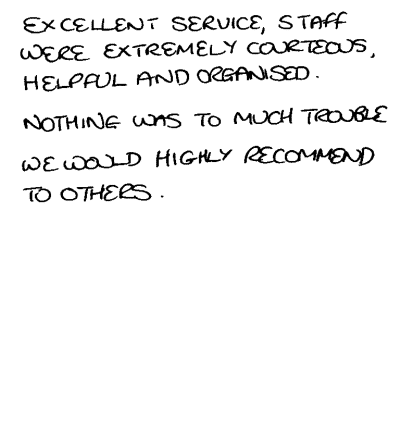 EXCELLENT SERVICE, STAFF
WERE EXTREMELY COURTEOUS,
HELPFUL AND ORGANISED.
NOTHING WAS TO MUCH TROUBLE
WE WOULD HIGHLY RECOMMEND
TO OTHERS.